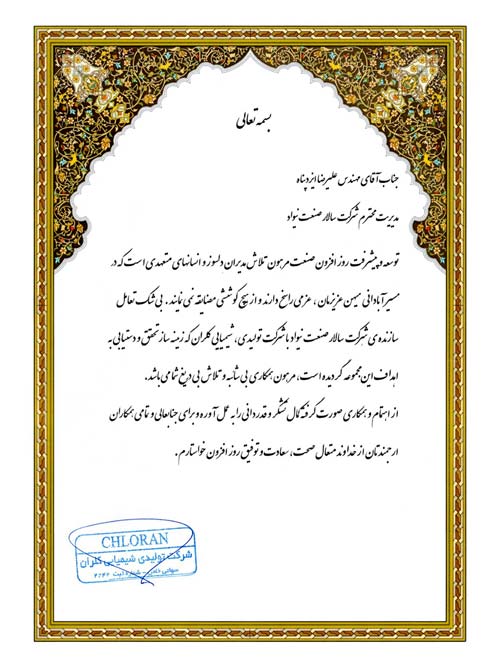 بسمه تعالی
جناب آقای مهندس علیرضا ایزدپناه
مدیریت محترم شرکت سالار صنعت نیواد
توسعه و پیشرفت روز افزون صنعت مرهون تلاش مدیران دلسوز و انسانهای متعهدی است که در
مسیر آبادانی میهن عزیزمان ، عزمی راسخ دارند و از هیچ کوششی مضایقه نمی نمایند . بی شک تعامل
سازنده ی شرکت سالار صنعت نیواد با شرکت تولیدی ، شیمیایی کلران که زمینه ساز تحقق و دستیابی به
اهداف این مجموعه گردیده است ، مرهون همکاری بی شائبه و تلاش بی دریغ شما می باشد.
از اهتمام و همکاری صورت گرفته کمال تشکر و قدردانی را به عمل آورده و برای جنابعالی و تمامی همکاران
ارجمندتان از خداوند متعال صحت ، سعادت و توفیق روز افزون خواستارم .
CHLORAN
شرکت تولیدی شیمیایی کلران
سهامی خاص - شماره ثبت